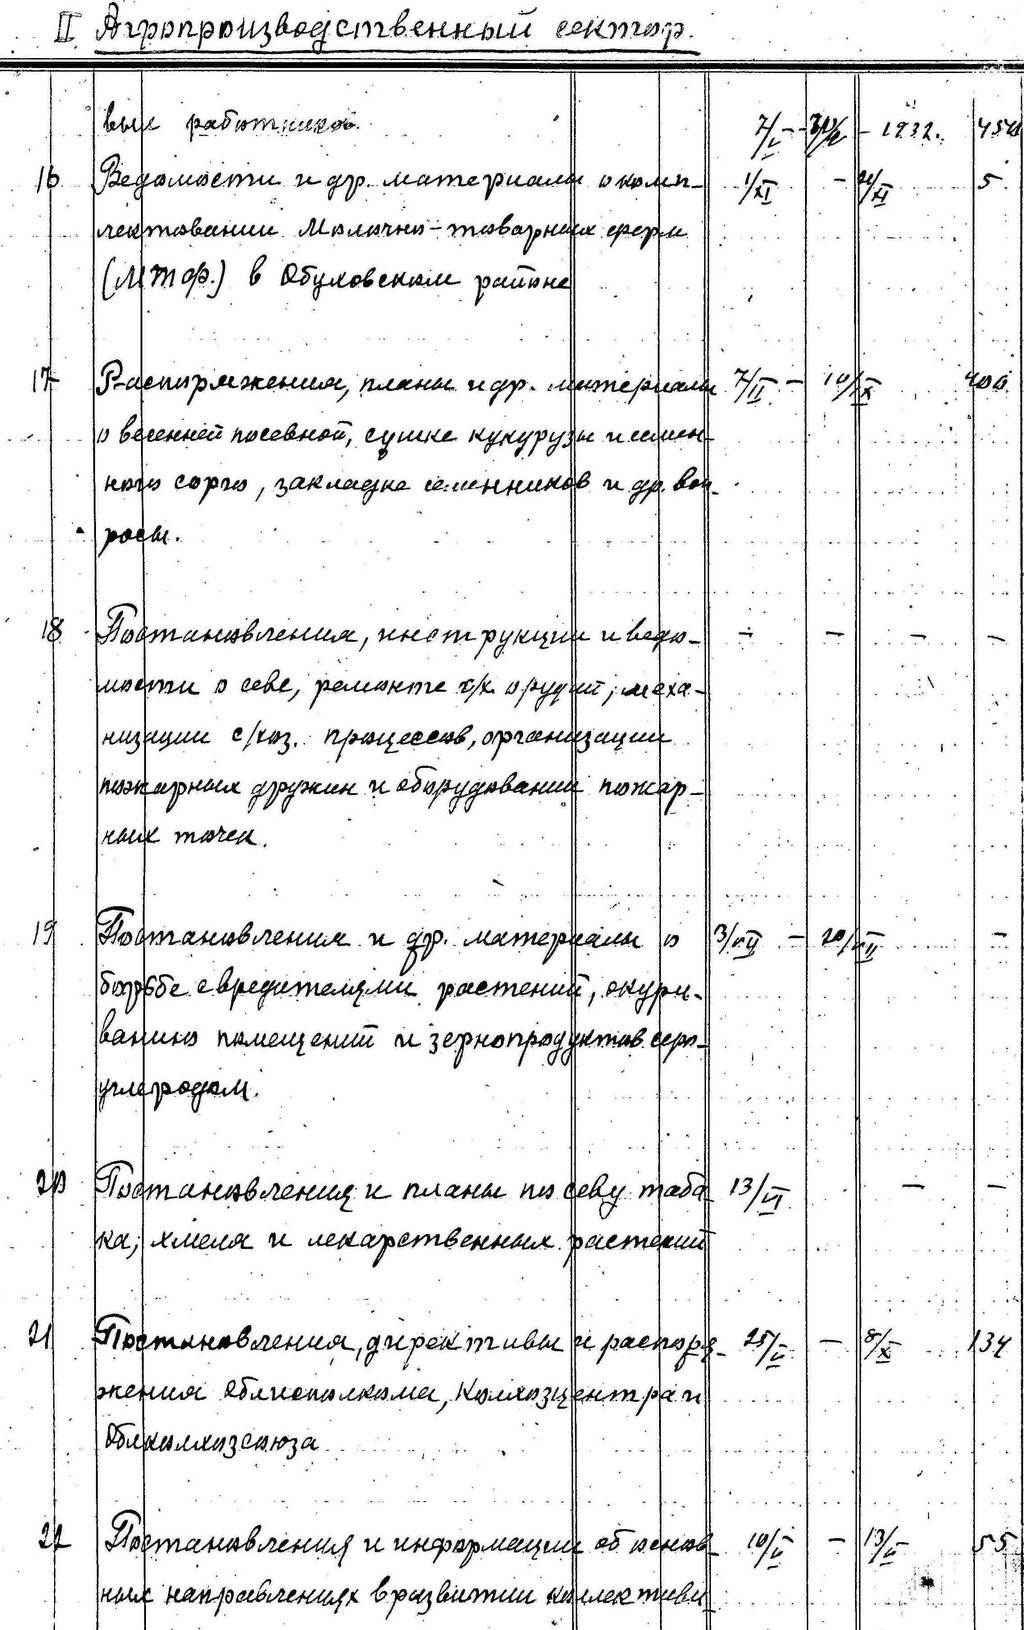 II Агропроизводственный сектор.
вых работников. 7/I - - 1932. 454
16 Ведомости и др. материалы о комп- 1/XI - 21/XI 5
лектовании Молочно-товарных ферм
(МТФ.) в Обуховском районе
17 Распоряжения, планы и др. материалы 7/II - 10/IX 400
о весенней посевной, сушке кукурузы и семен-
ного сорго, закладке семенников и др. воп-
росы.
18 Постановления, инструкции и ведо- - - - -
мости о севе, ремонте с/х орудий, меха-
низации с/хоз. процессов, организации
пожарных дружин и оборудовании пожар-
ных точек.
19 Постановления и др. материалы о 3/VII - 20/VII -
борьбе с вредителями растений, окури-
ванию помещений и зернопродуктов серо-
углеродом.
20 Постановления и планы по севу таба- 13/VI - -
ка, хмеля и лекарственных растений
21 Постановления, директивы и распоря- 25/II - 8/X 134
жения Облисполкома, Колхозцентра и
Облколхозсоюза
22 Постановления и информации об основ- 10/II - 13/II 55
ных направлениях в развитии коллективи-